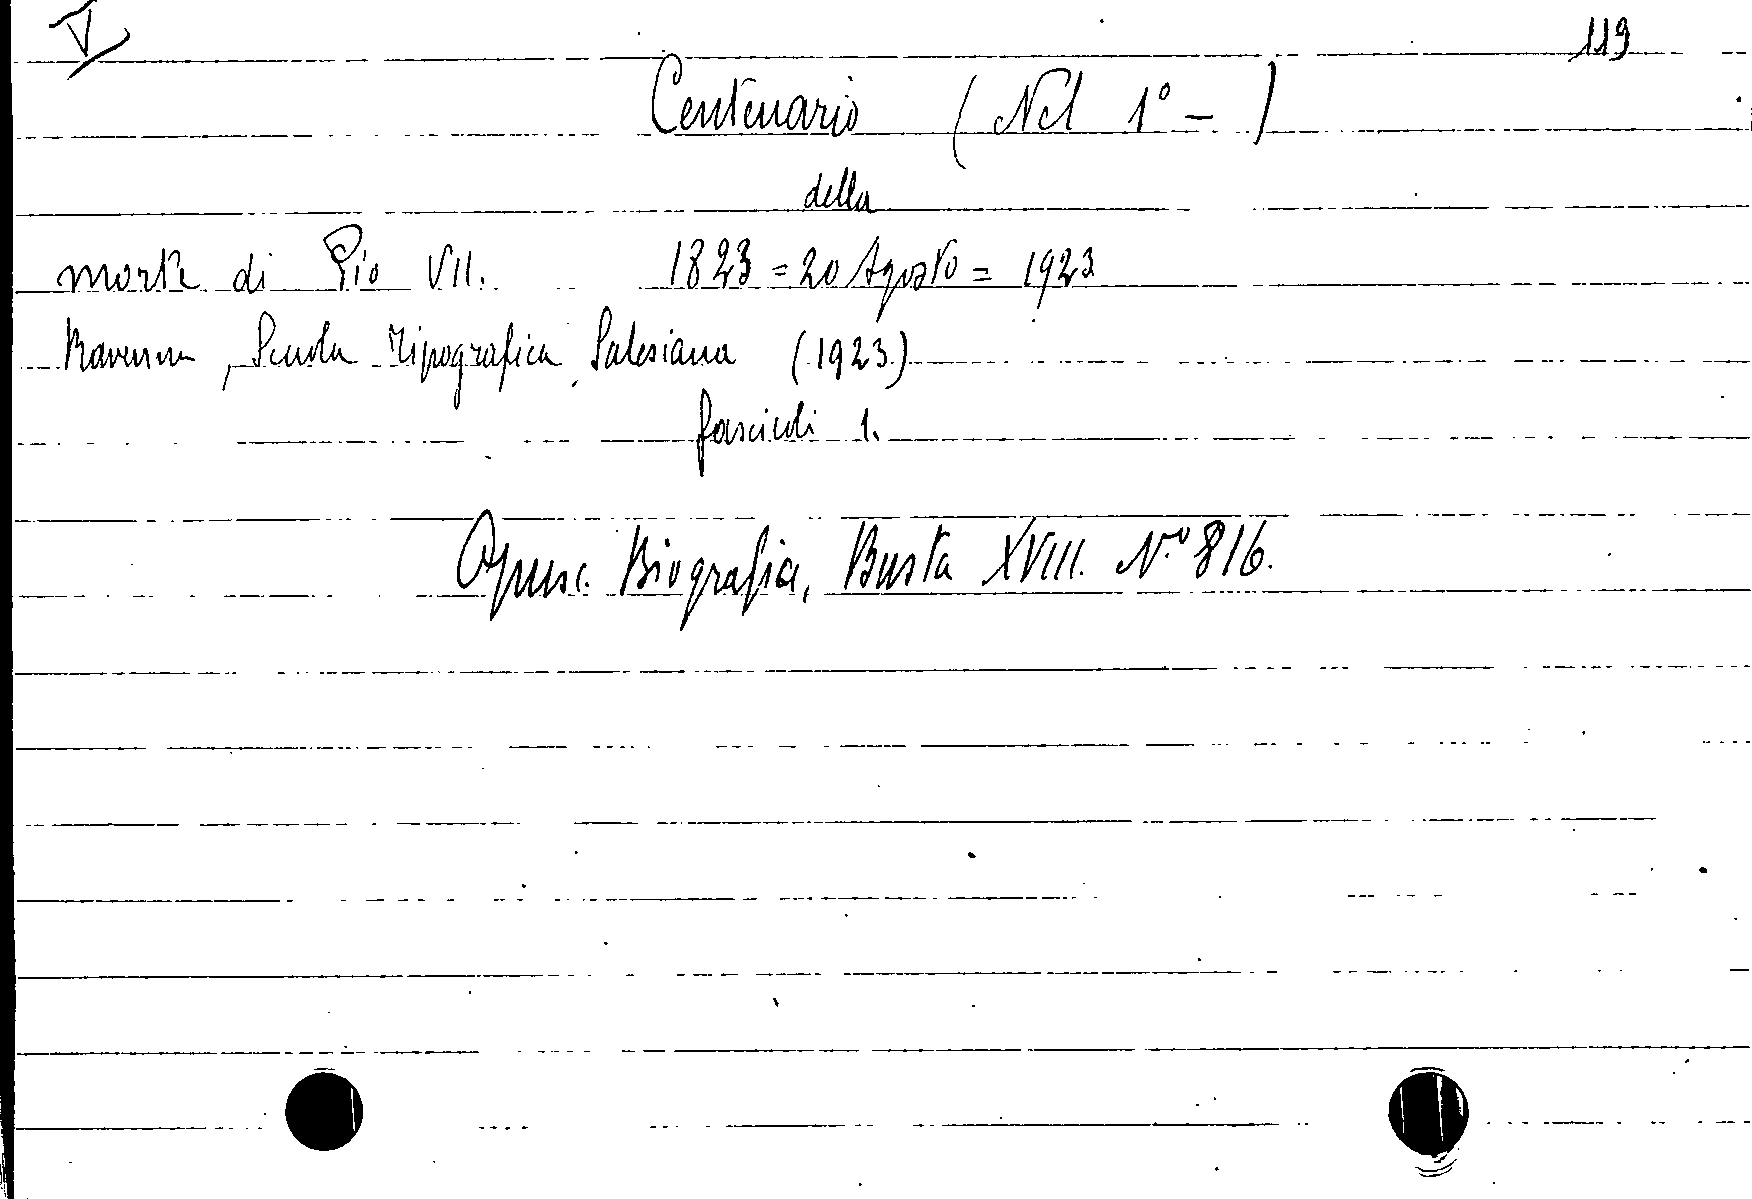 V 119
Centenario ( Nel 1° - )
della
morte di Pio VII. 1823 = 20 Agosto = 1923
Ravenna, Scuola Tipografica Salesiana (1923)
fascicoli 1.
Opusc. Biografia, Busta XVIII. N.° 816.